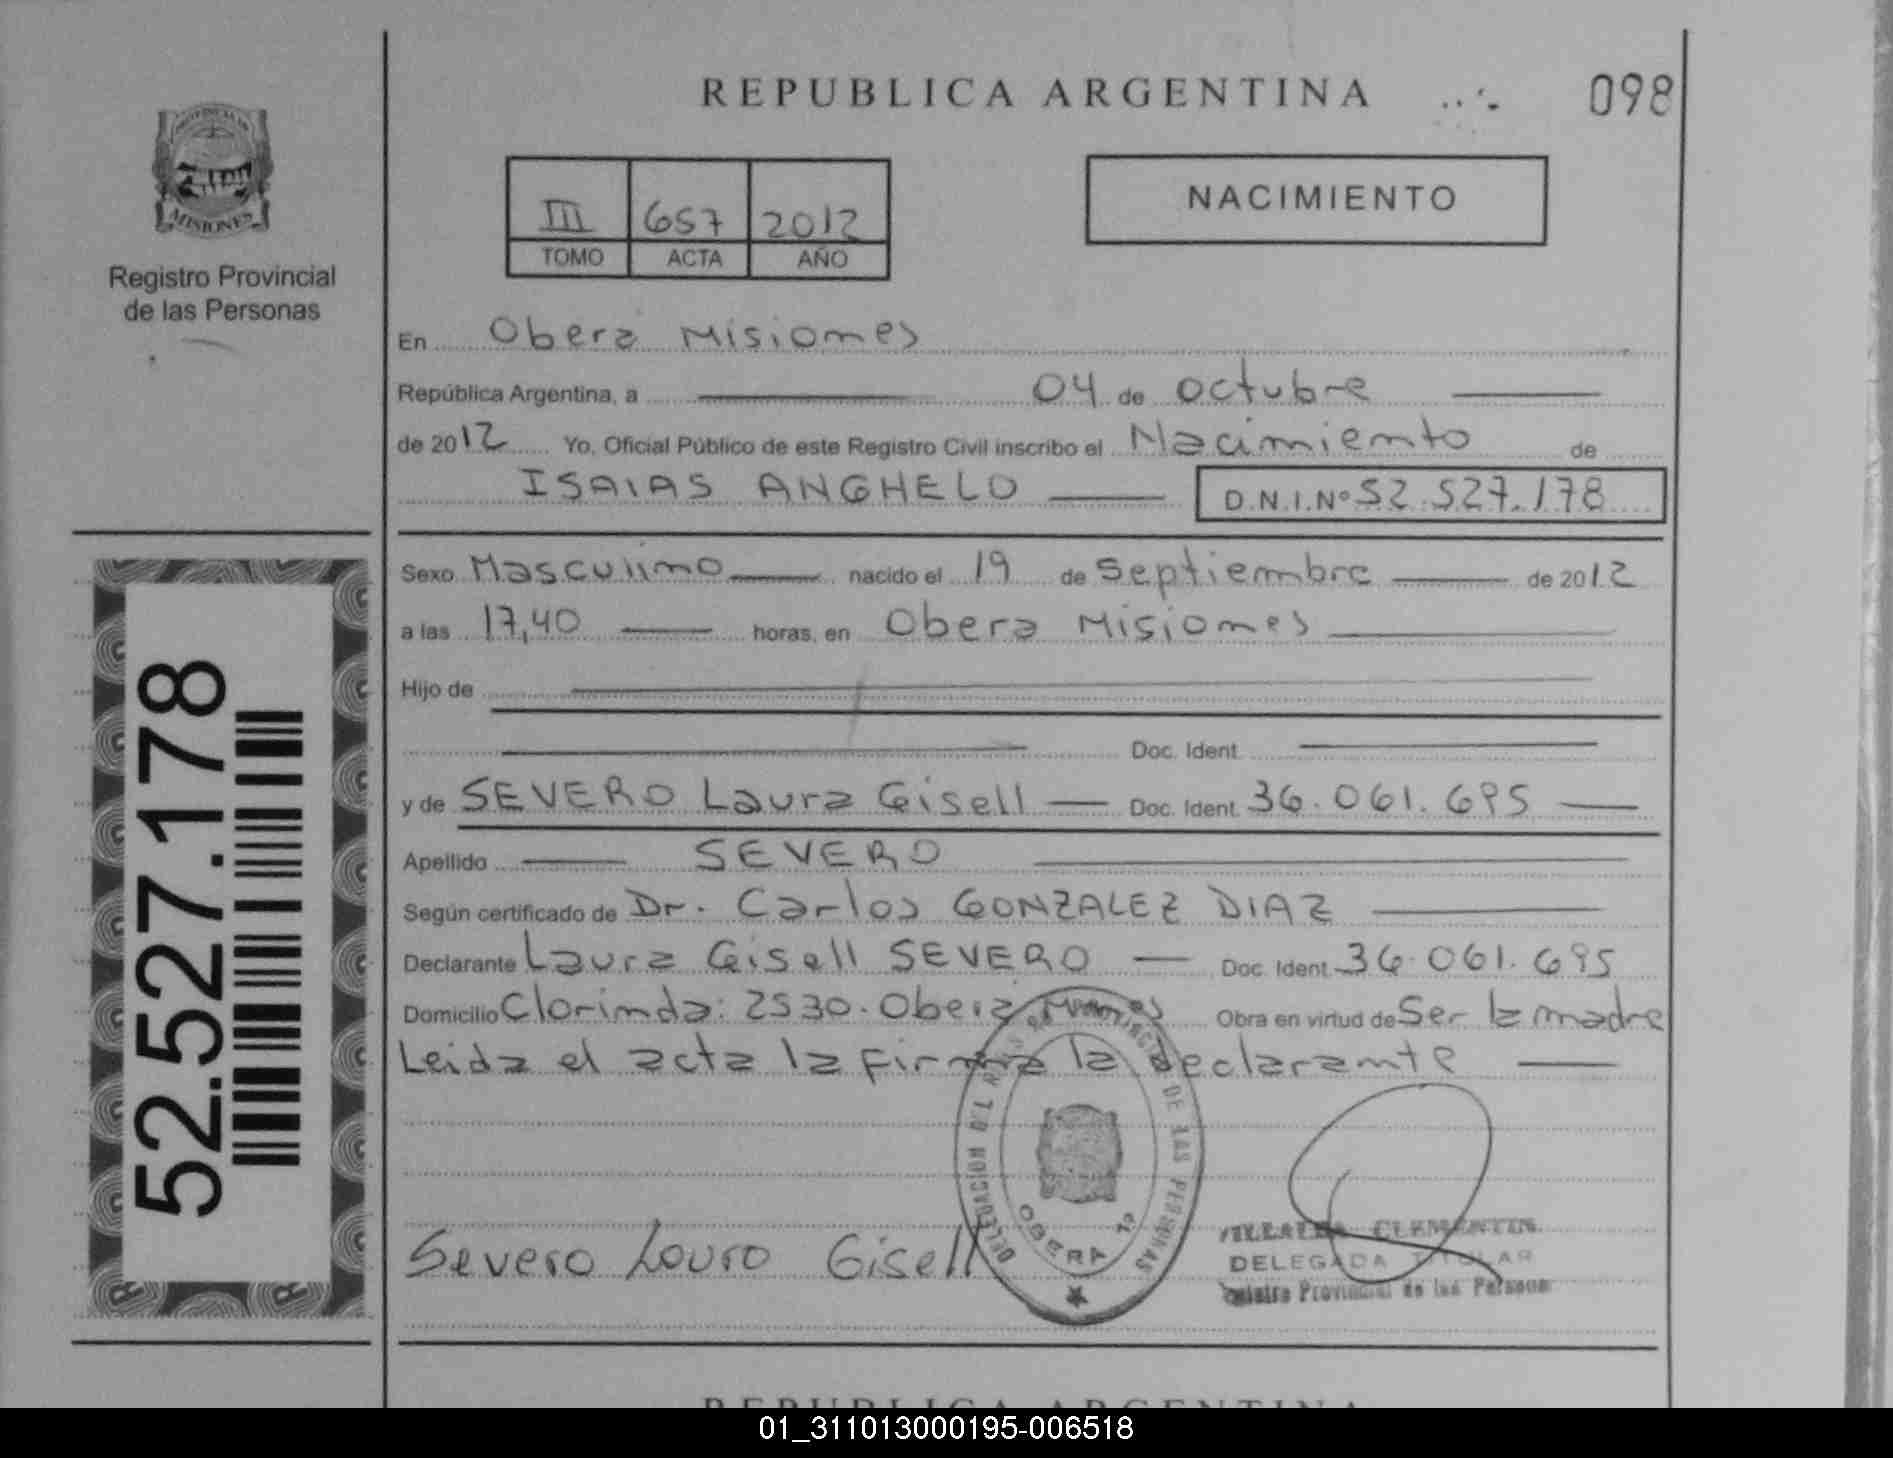 REPUBLICA ARGENTINA
098
PROVINCIA DE
MISIONES
Registro Provincial
de las Personas
III 657 2012
TOMO ACTA AÑO
NACIMIENTO
En Obera Misiones
República Argentina, a 04 de octubre
de 2012 Yo, Oficial Público de este Registro Civil inscribo el Nacimiento de
ISAIAS ANGHELO D.N.I.Nº 52.527.178
Sexo Masculino nacido el 19 de Septiembre de 2012
a las 17,40 horas, en Obera Misiones
Hijo de
Doc. Ident.
y de SEVERO Laura Gisell Doc. Ident. 36.061.695
Apellido SEVERO
Según certificado de Dr. Carlos GONZALEZ DIAZ
Declarante Laura Gisell SEVERO Doc. Ident. 36.061.695
Domicilio Clorinda: 2530. Obera Obra en virtud de Ser la madre
Leida el acta la firma la declarante
52.527.178
DELEGACION DEL REGISTRO PROVINCIAL DE LAS PERSONAS
OBERA 1ª
Severo Laura Gisell
VILLALBA CLEMENTIN
DELEGADA TITULAR
Registro Provincial de las Personas
REPUBLICA ARGENTINA
01_311013000195-006518